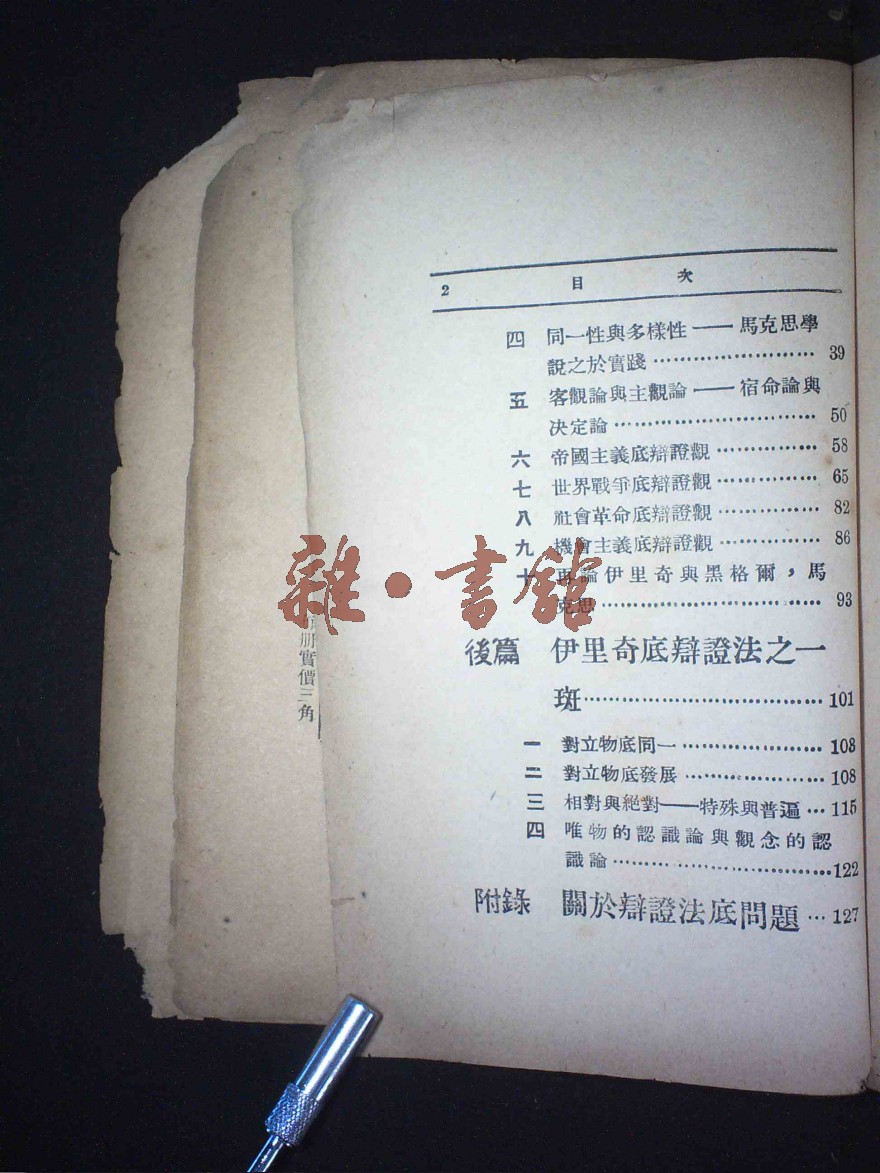 2 目次
四 同一性與多樣性——馬克思學
說之於實踐…………………… 39
五 客觀論與主觀論——宿命論與
決定論………………………… 50
六 帝國主義底辯證觀…………… 58
七 世界戰爭底辯證觀…………… 65
八 社會革命底辯證觀…………… 82
九 機會主義底辯證觀…………… 86
十 再論伊里奇與黑格爾，馬
克思…………………………… 93
後篇 伊里奇底辯證法之一
斑……………………………… 101
一 對立物底同一………………… 103
二 對立物底發展………………… 108
三 相對與絕對——特殊與普遍… 115
四 唯物的認識論與觀念的認
識論…………………………… 122
附錄 關於辯證法底問題… 127
册實價三角
雜·書館